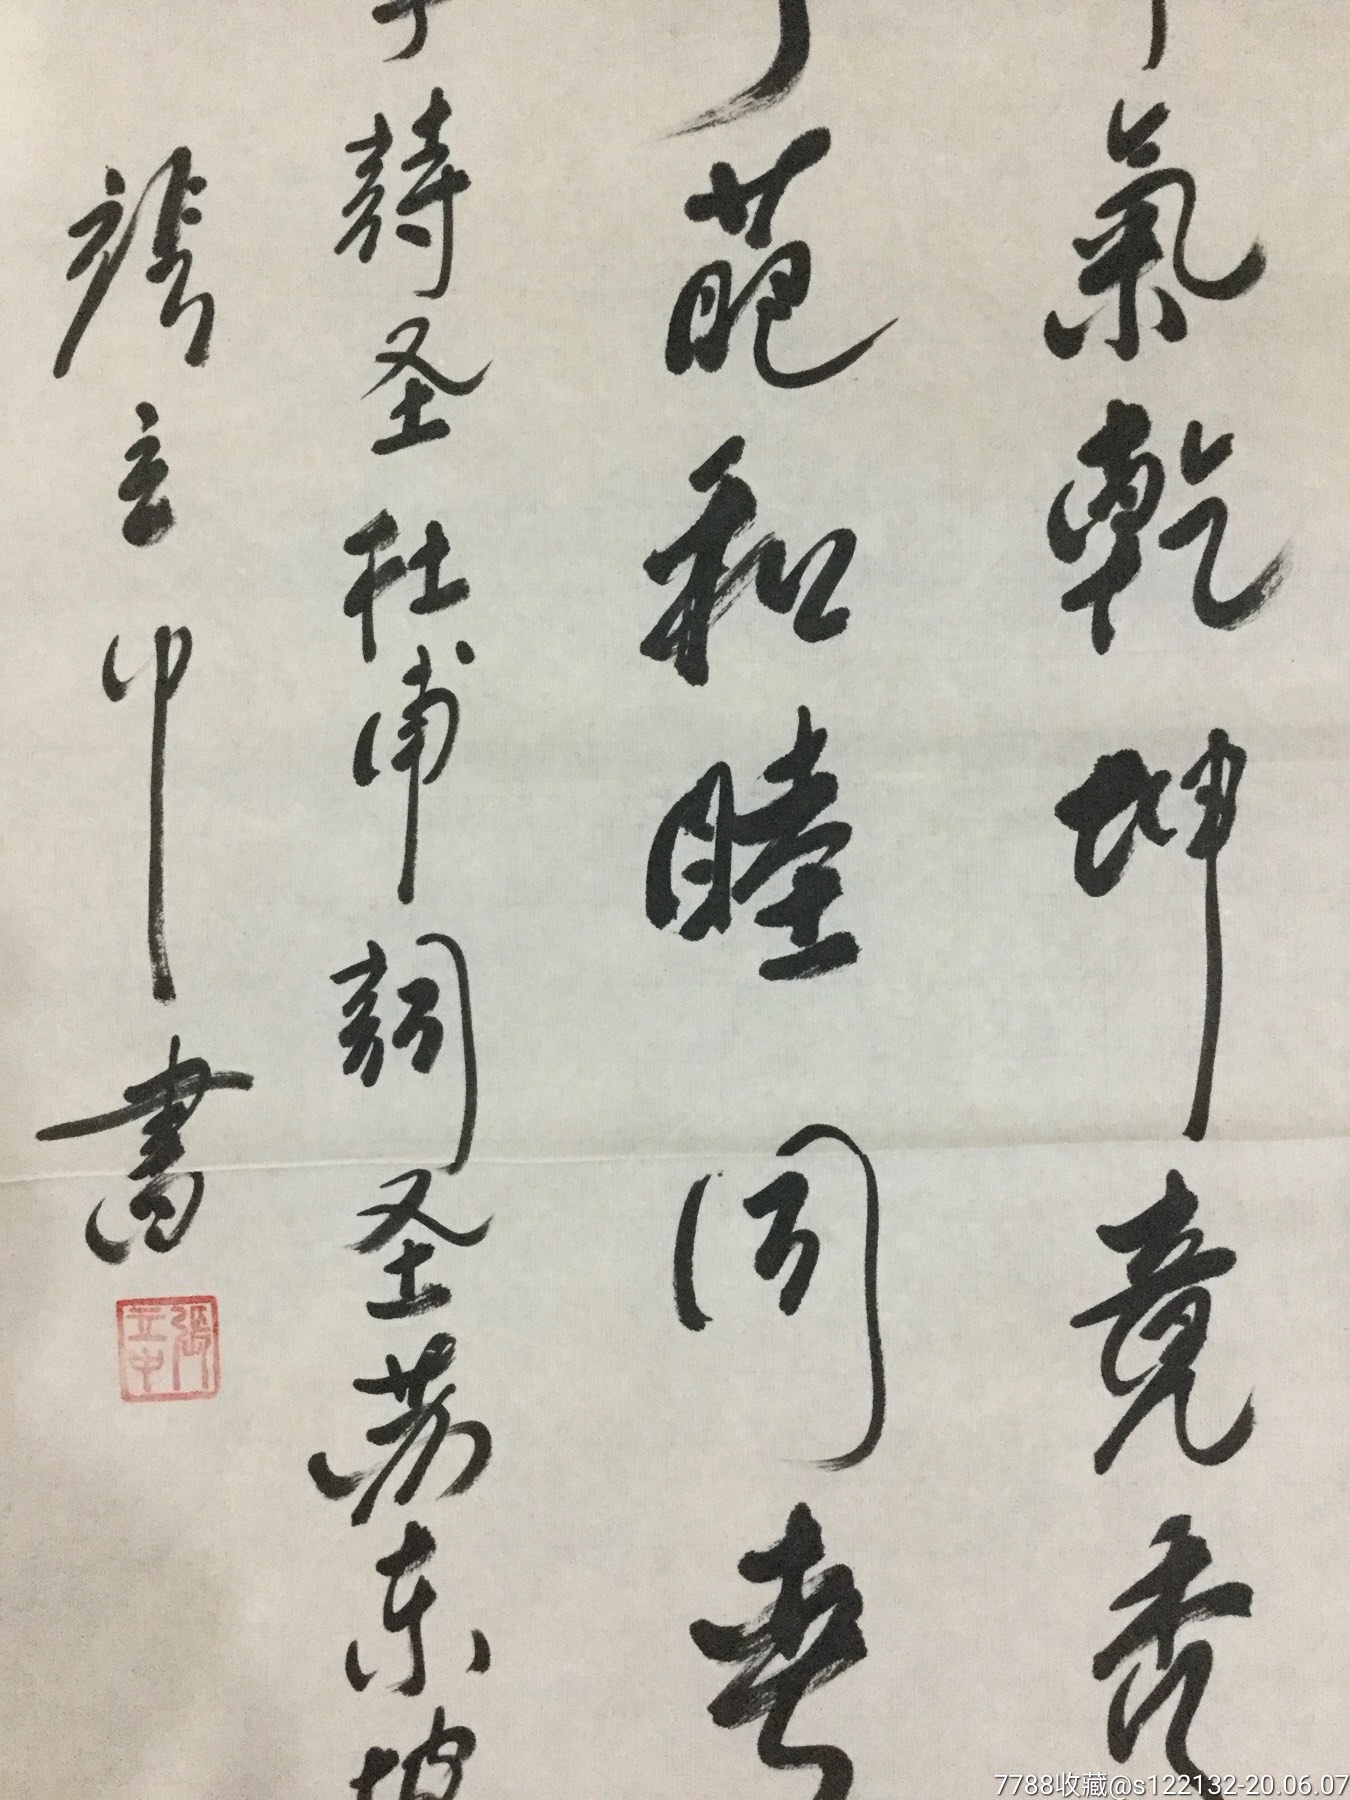 氣乾坤竞秀
葩和睦同春
詩圣杜甫詞圣苏东坡
張立中書
張立中
7788收藏@s122132-20.06.07